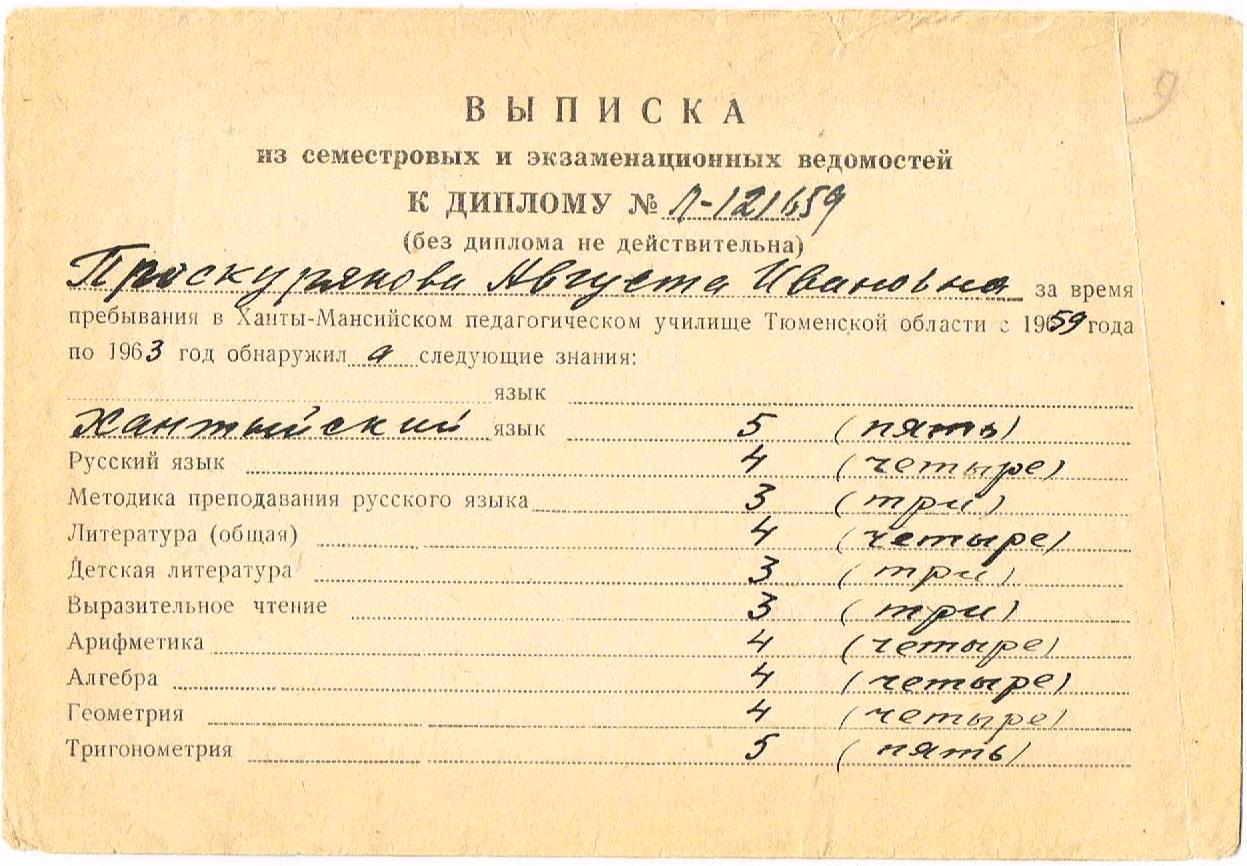 9
ВЫПИСКА
из семестровых и экзаменационных ведомостей
К ДИПЛОМУ № Л-121659
(без диплома не действительна)
Проскурякова Августа Ивановна за время
пребывания в Ханты-Мансийском педагогическом училище Тюменской области с 1959 года
по 1963 год обнаружил а следующие знания:
язык
Хантыйский язык 5 (пять)
Русский язык 4 (четыре)
Методика преподавания русского языка 3 (три)
Литература (общая) 4 (четыре)
Детская литература 3 (три)
Выразительное чтение 3 (три)
Арифметика 4 (четыре)
Алгебра 4 (четыре)
Геометрия 4 (четыре)
Тригонометрия 5 (пять)